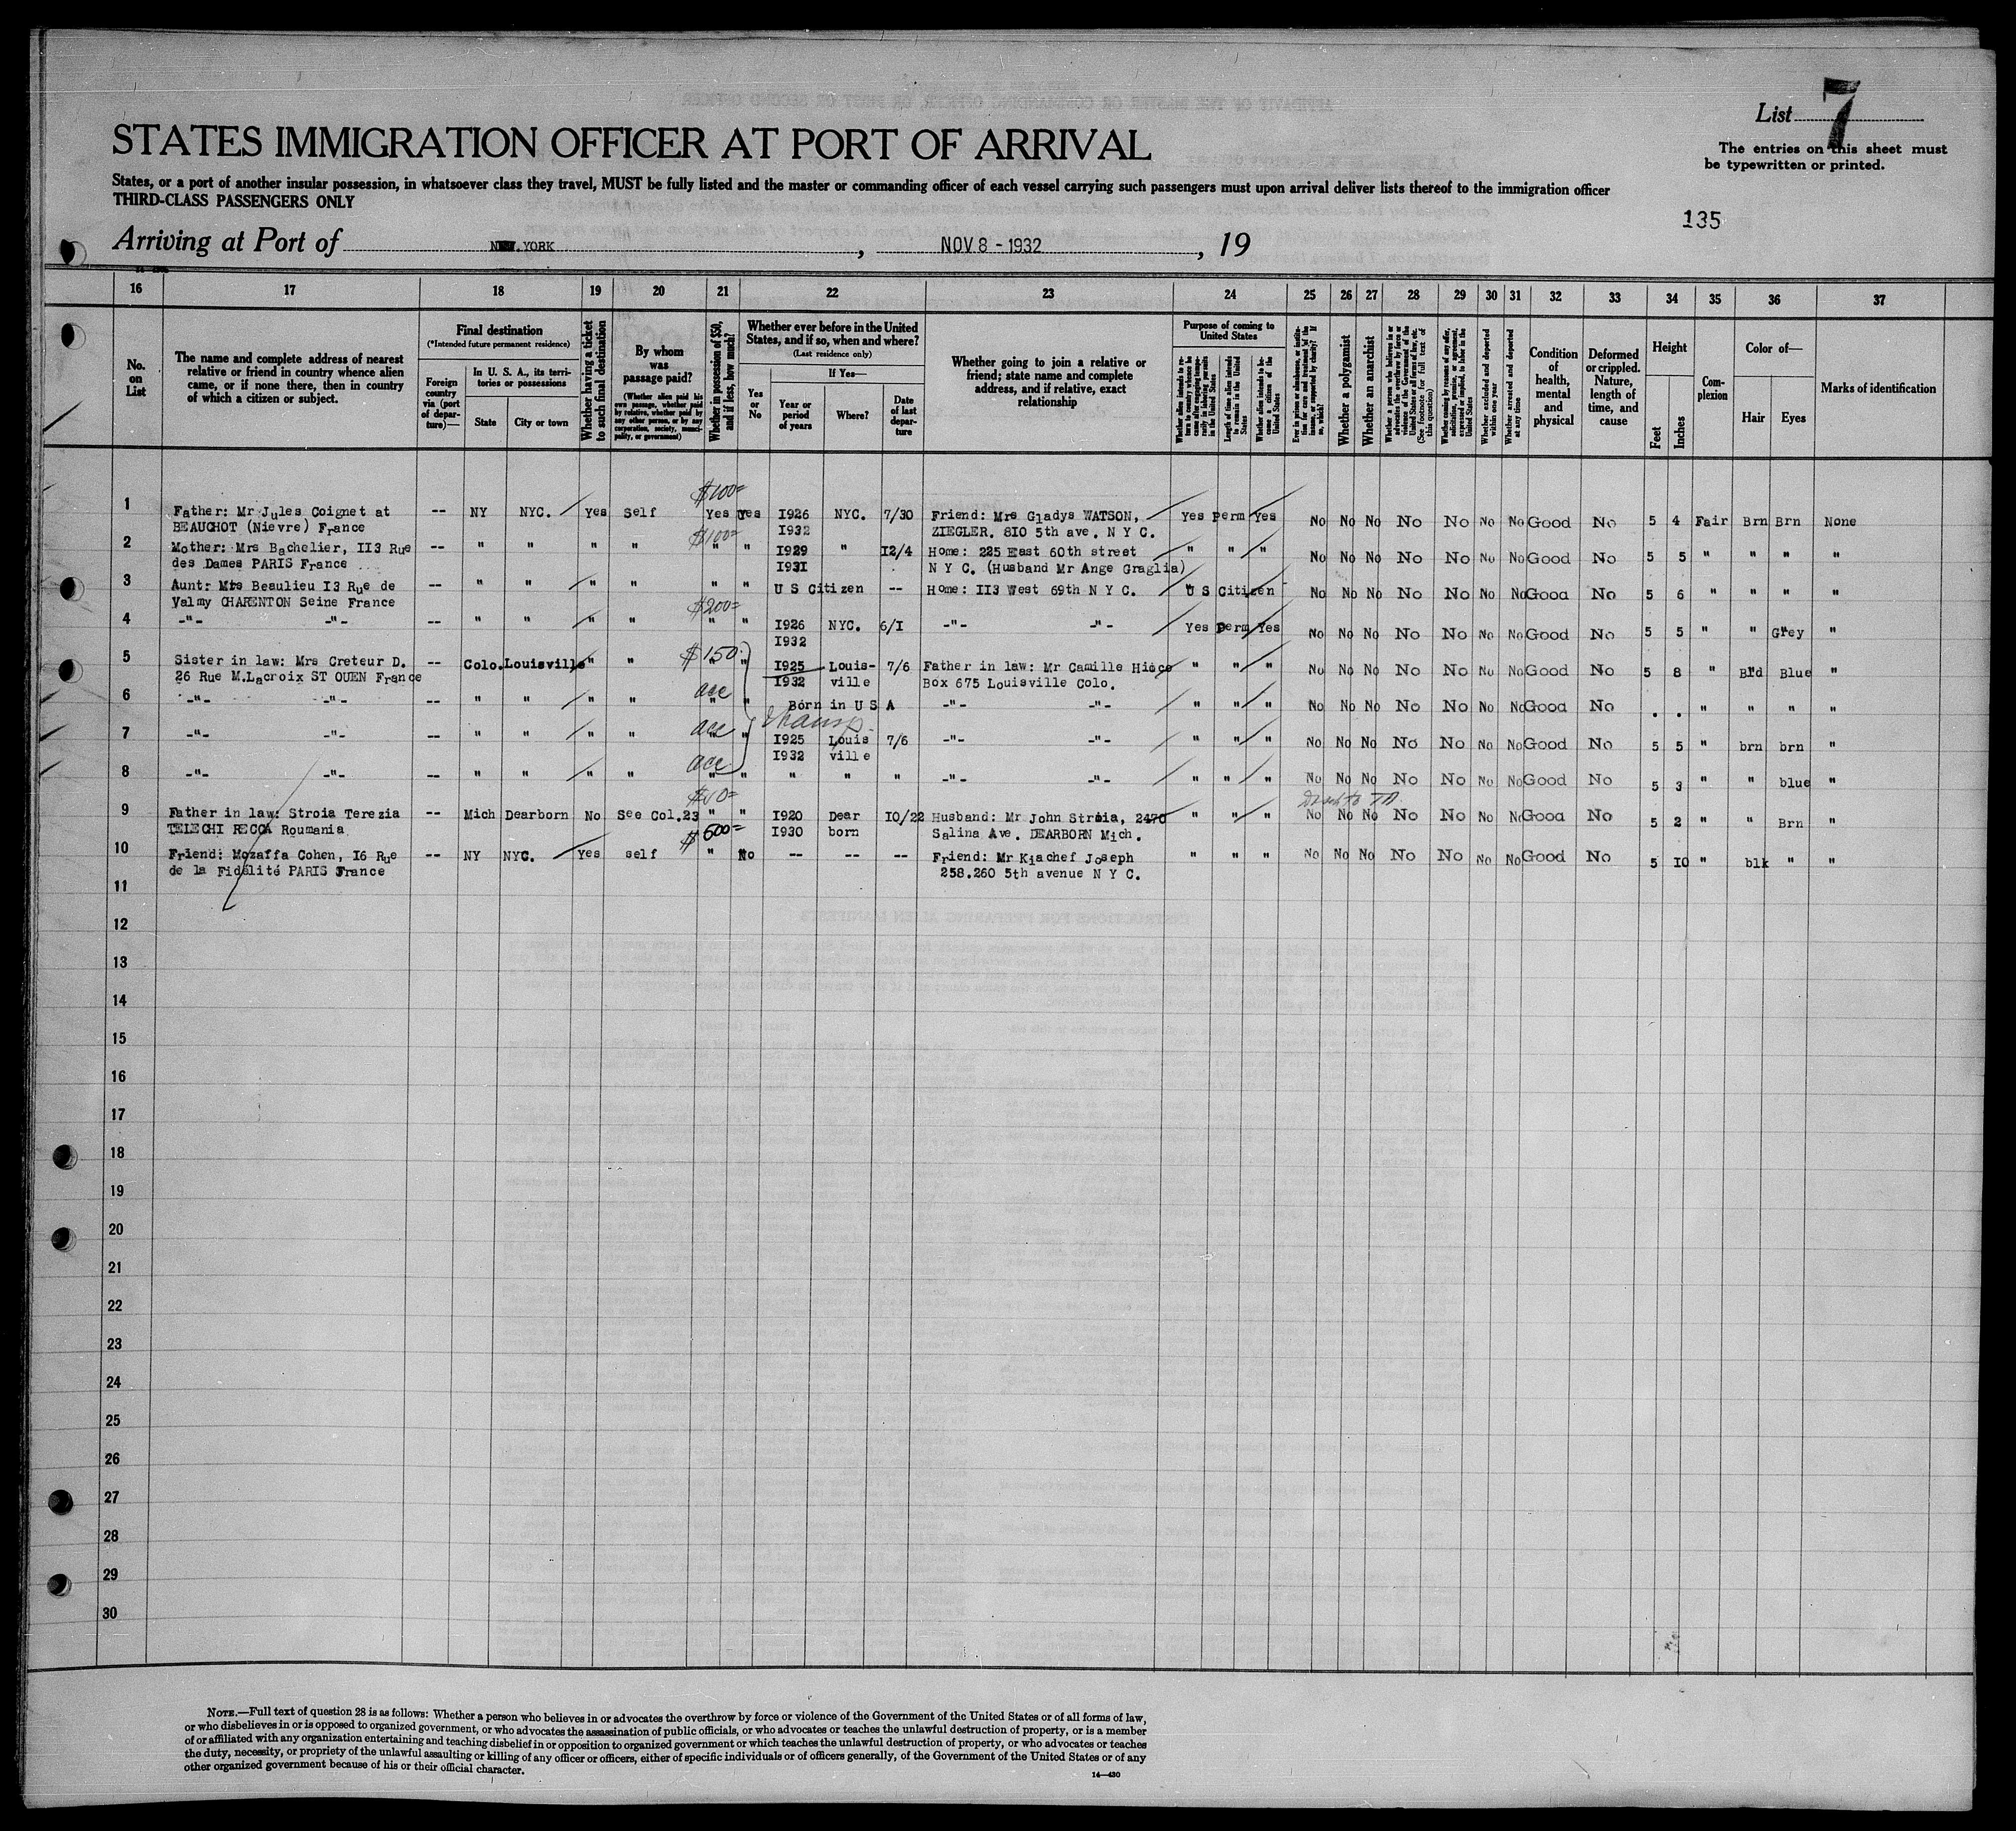 List 7
STATES IMMIGRATION OFFICER AT PORT OF ARRIVAL
The entries on this sheet must
be typewritten or printed.
States, or a port of another insular possession, in whatsoever class they travel, MUST be fully listed and the master or commanding officer of each vessel carrying such passengers must upon arrival deliver lists thereof to the immigration officer
THIRD-CLASS PASSENGERS ONLY
135
Arriving at Port of NEW YORK, NOV 8 - 1932, 19
16 17 18 19 20 21 22 23 24 25 26 27 28 29 30 31 32 33 34 35 36 37
No. on List
The name and complete address of nearest
relative or friend in country whence alien
came, or if none there, then in country
of which a citizen or subject.
Final destination
(*Intended future permanent residence)
Foreign country via (port of departure)—
In U. S. A., its territories or possessions
State
City or town
Whether having a ticket to such final destination
By whom was passage paid?
(Whether alien paid his own passage, whether paid by relative, whether paid by any other person, or by any corporation, society, municipality, or government)
Whether in possession of $50, and if less, how much?
Whether ever before in the United States, and if so, when and where?
(Last residence only)
Yes or No
If Yes—
Year or period of years
Where?
Date of last departure
Whether going to join a relative or
friend; state name and complete
address, and if relative, exact
relationship
Purpose of coming to United States
Length of time alien intends to remain in the United States
Whether alien intends to become a citizen of the United States
Whether a polygamist
Whether an anarchist
(See footnote for full text of this question)
Whether excluded and deported within one year
Whether arrested and deported at any time
Condition of health, mental and physical
Deformed or crippled. Nature, length of time, and cause
Height
Feet
Inches
Complexion
Color of—
Hair
Eyes
Marks of identification
$100=
1 Father: Mr Jules Coignet at -- NY NYC. Yes Self Yes Yes I926 NYC. 7/30 Friend: Mrs Gladys WATSON, Yes Perm Yes No No No No No No No Good No 5 4 Fair Brn Brn None
BEAUCHOT (Nievre) France I932 ZIEGLER. 8IO 5th ave. N Y C.
$100=
2 Mother: Mrs Bachelier, II3 Rue -- " " " " " " I929 " I2/4 Home: 225 East 60th street " " " No No No No No No No Good No 5 5 " " " "
des Dames PARIS France I93I N Y C. (Husband Mr Ange Graglia)
3 Aunt: Mrs Beaulieu I3 Rue de -- " " " " " " U S Citizen -- Home: II3 West 69th N Y C. U S Citizen No No No No No No No Good No 5 6 " " " "
Valmy CHARENTON Seine France
$200=
4 -"- -"- -- " " " " " " I926 NYC. 6/I -"- -"- Yes Perm Yes No No No No No No No Good No 5 5 " " Grey "
I932
$150
5 Sister in law: Mrs Creteur D. -- Colo. Louisville " " " " I925 Louis- 7/6 Father in law: Mr Camille Hicco " " " No No No No No No No Good No 5 8 " Bld Blue "
26 Rue M.Lacroix ST OUEN France I932 ville Box 675 Louisville Colo.
acc
6 -"- -"- -- " " " " " " Born in U S A -"- -"- " " " No No No No No No No Good No . . " " " "
acc
7 -"- -"- -- " " " " " " I925 Louis 7/6 -"- -"- " " " No No No No No No No Good No 5 5 " brn brn "
I932 ville
acc
8 -"- -"- -- " " " " " " " " " -"- -"- " " " No No No No No No No Good No 5 3 " " blue "
9 Father in law: Stroia Terezia -- Mich Dearborn No See Col.23 " " I920 Dear IO/22 Husband: Mr John Stroia, 2470 " " " No No No No No No No Good No 5 2 " " Brn "
TELECHI RECCA Roumania I930 born Salina Ave. DEARBORN Mich.
$600=
10 Friend: Mozaffa Cohen, I6 Rue -- NY NYC. Yes self " No -- -- -- Friend: Mr Kiachef Joseph " " " No No No No No No No Good No 5 IO " blk " "
de la Fidélité PARIS France 258.260 5th avenue N Y C.
11
12
13
14
15
16
17
18
19
20
21
22
23
24
25
26
27
28
29
30
NOTE.—Full text of question 28 is as follows: Whether a person who believes in or advocates the overthrow by force or violence of the Government of the United States or of all forms of law,
or who disbelieves in or is opposed to organized government, or who advocates the assassination of public officials, or who advocates or teaches the unlawful destruction of property, or is a member
of or affiliated with any organization entertaining and teaching disbelief in or opposition to organized government or which teaches the unlawful destruction of property, or who advocates or teaches
the duty, necessity, or propriety of the unlawful assaulting or killing of any officer or officers, either of specific individuals or of officers generally, of the Government of the United States or of any
other organized government because of his or their official character.
14—430